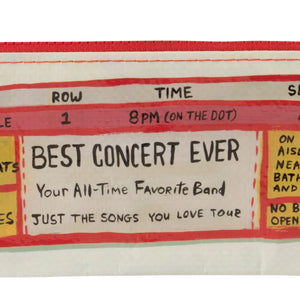 ROW TIME
1 8PM (ON THE DOT)
BEST CONCERT EVER
Your All-Time Favorite Band
JUST THE SONGS YOU LOVE TOUR
ON
AISL
NEA
BATH
AND
NO B
OPEN